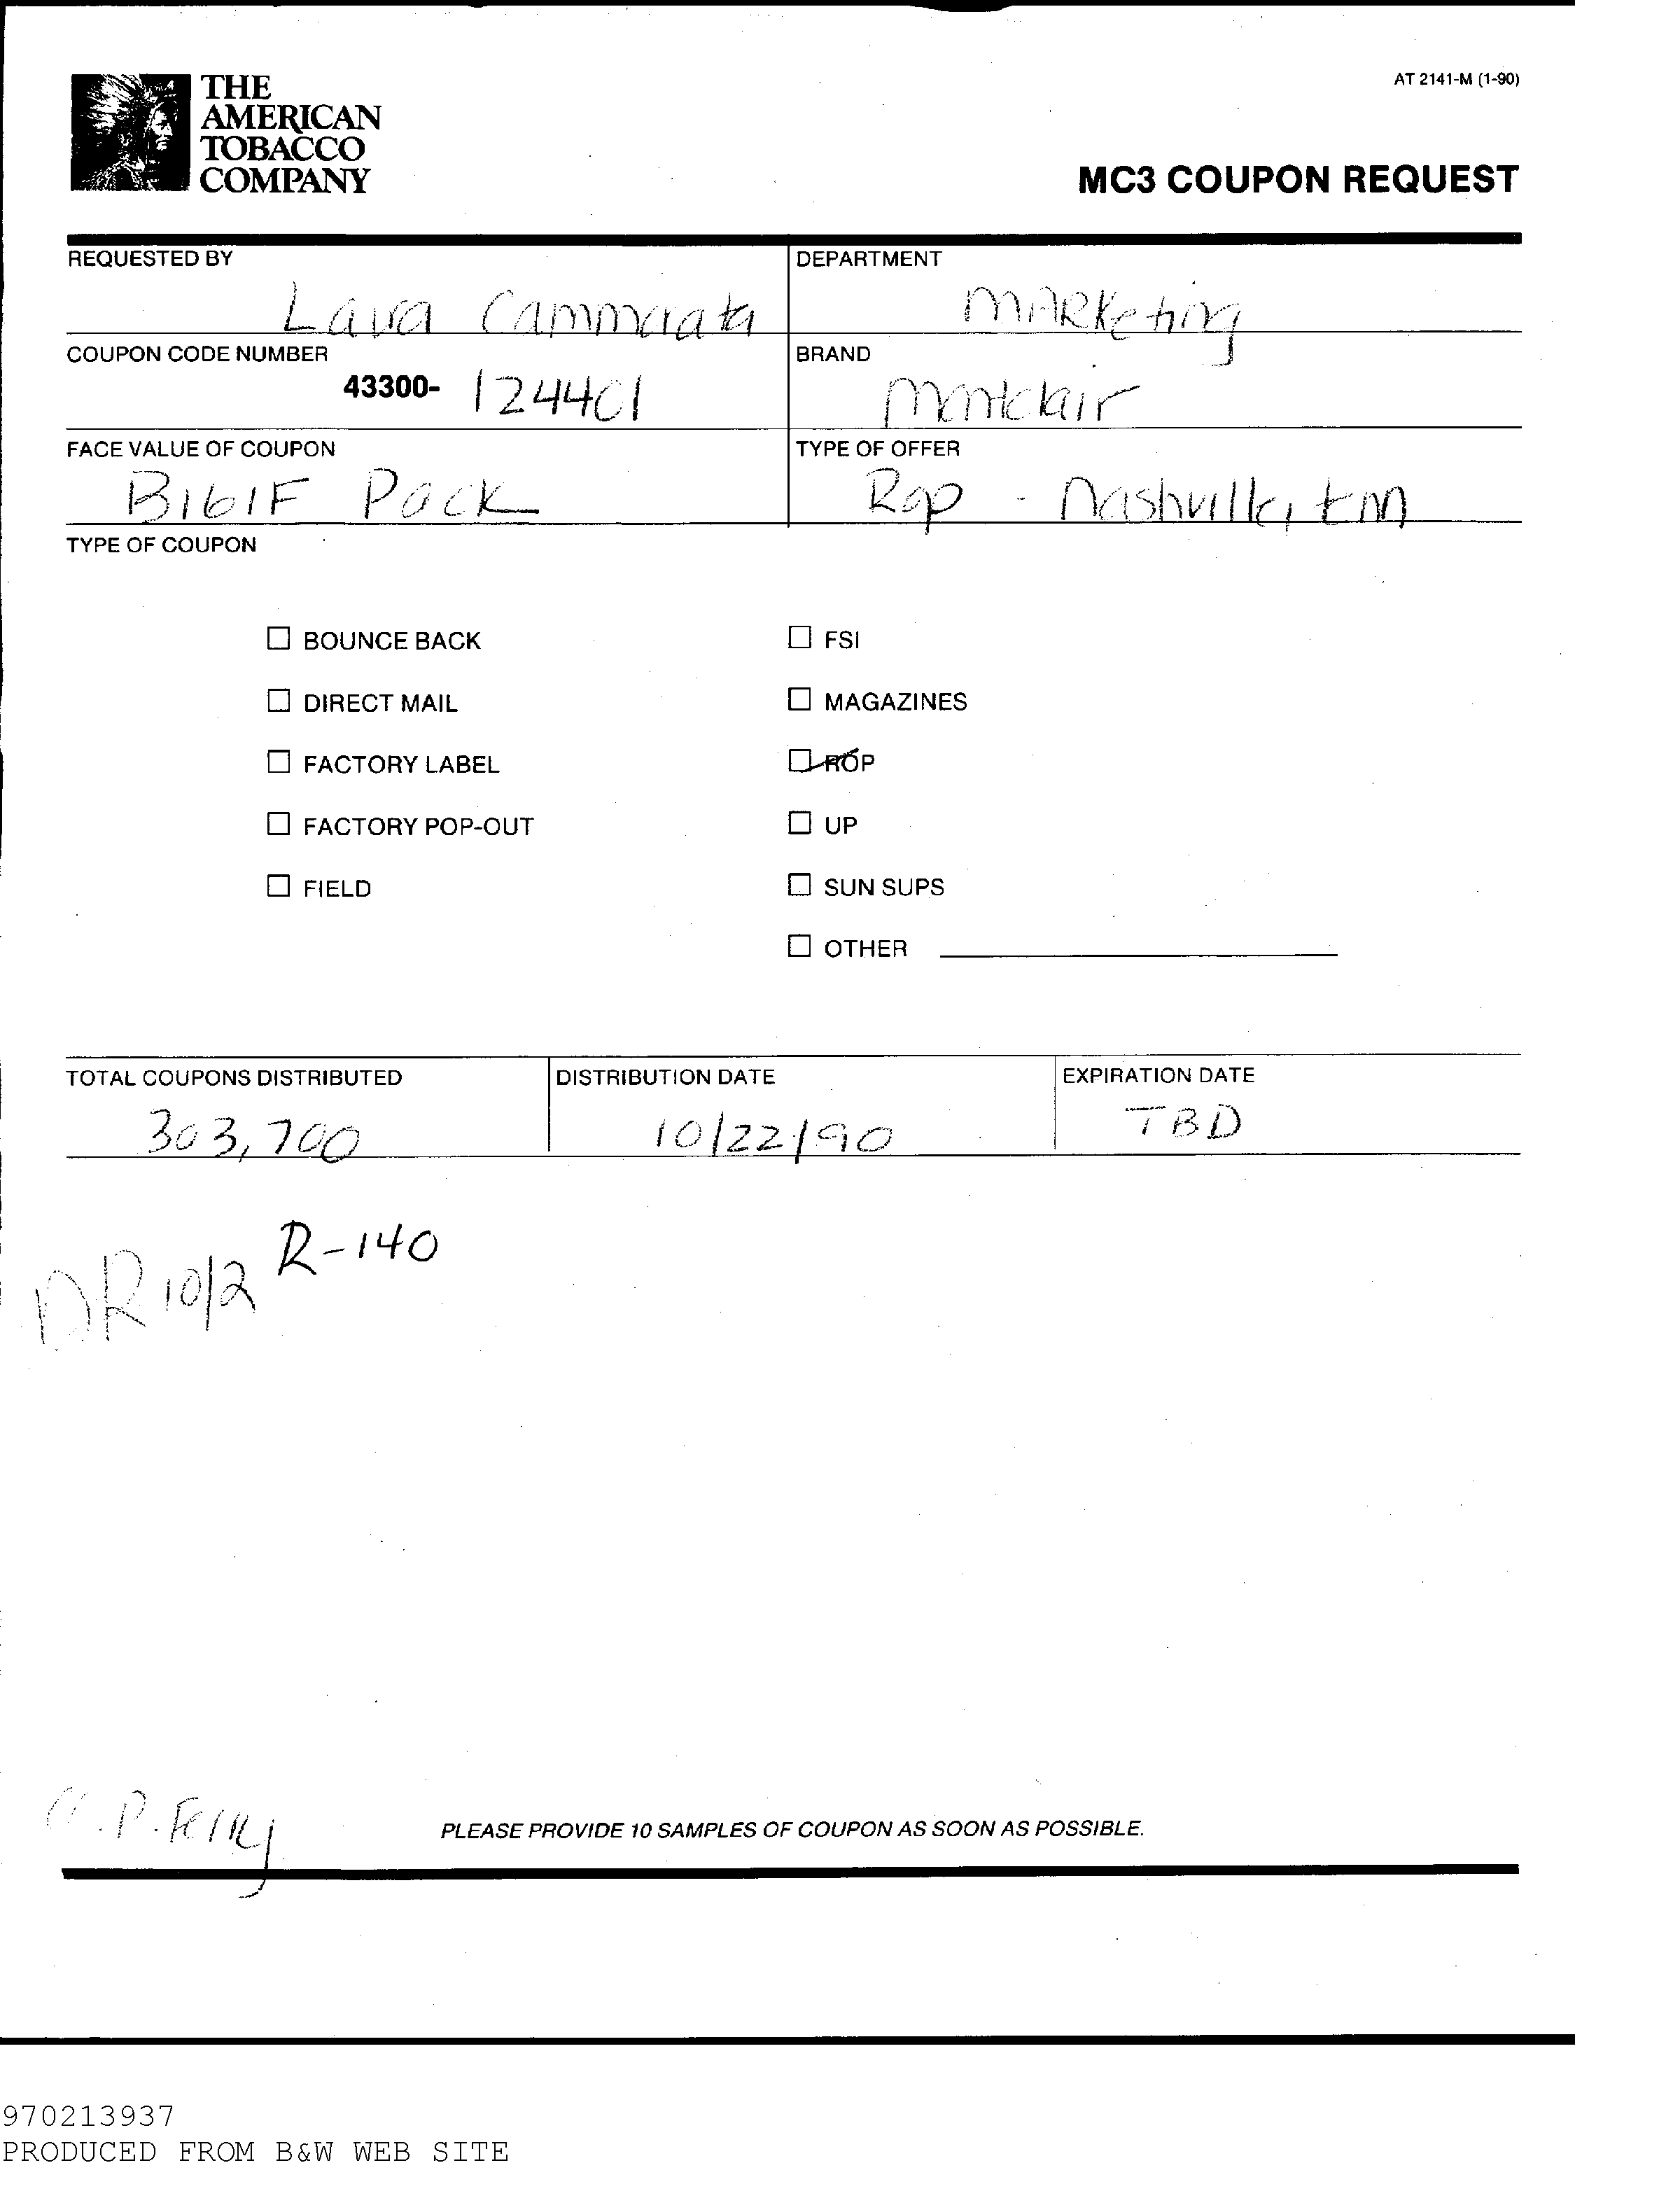 THE
AMERICAN
TOBACCO
COMPANY
AT 2141-M (1-90)
MC3 COUPON REQUEST
REQUESTED BY
Laura Cammarata
DEPARTMENT
MARKeting
COUPON CODE NUMBER
43300- 124401
BRAND
Montclair
FACE VALUE OF COUPON
B1G1F Pack
TYPE OF OFFER
Rop - Nashville, tnn
TYPE OF COUPON
BOUNCE BACK
DIRECT MAIL
FACTORY LABEL
FACTORY POP-OUT
FIELD
FSI
MAGAZINES
ROP
UP
SUN SUPS
OTHER
TOTAL COUPONS DISTRIBUTED
303,700
DISTRIBUTION DATE
10/22/90
EXPIRATION DATE
TBD
R-140
DR 10/2
P. Ferry
PLEASE PROVIDE 10 SAMPLES OF COUPON AS SOON AS POSSIBLE.
970213937
PRODUCED FROM B&W WEB SITE